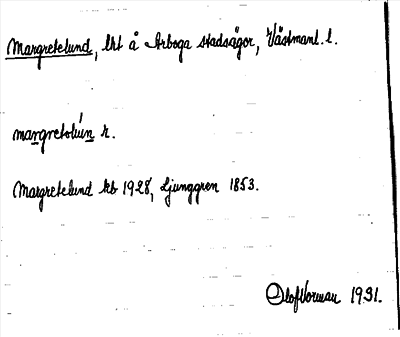 Margretelund, lht å Arboga stadsägor, Västmanl. l.
margretəlún r.
Margretelund kb 1928, Ljunggren 1853.
Olof Norman 1931.